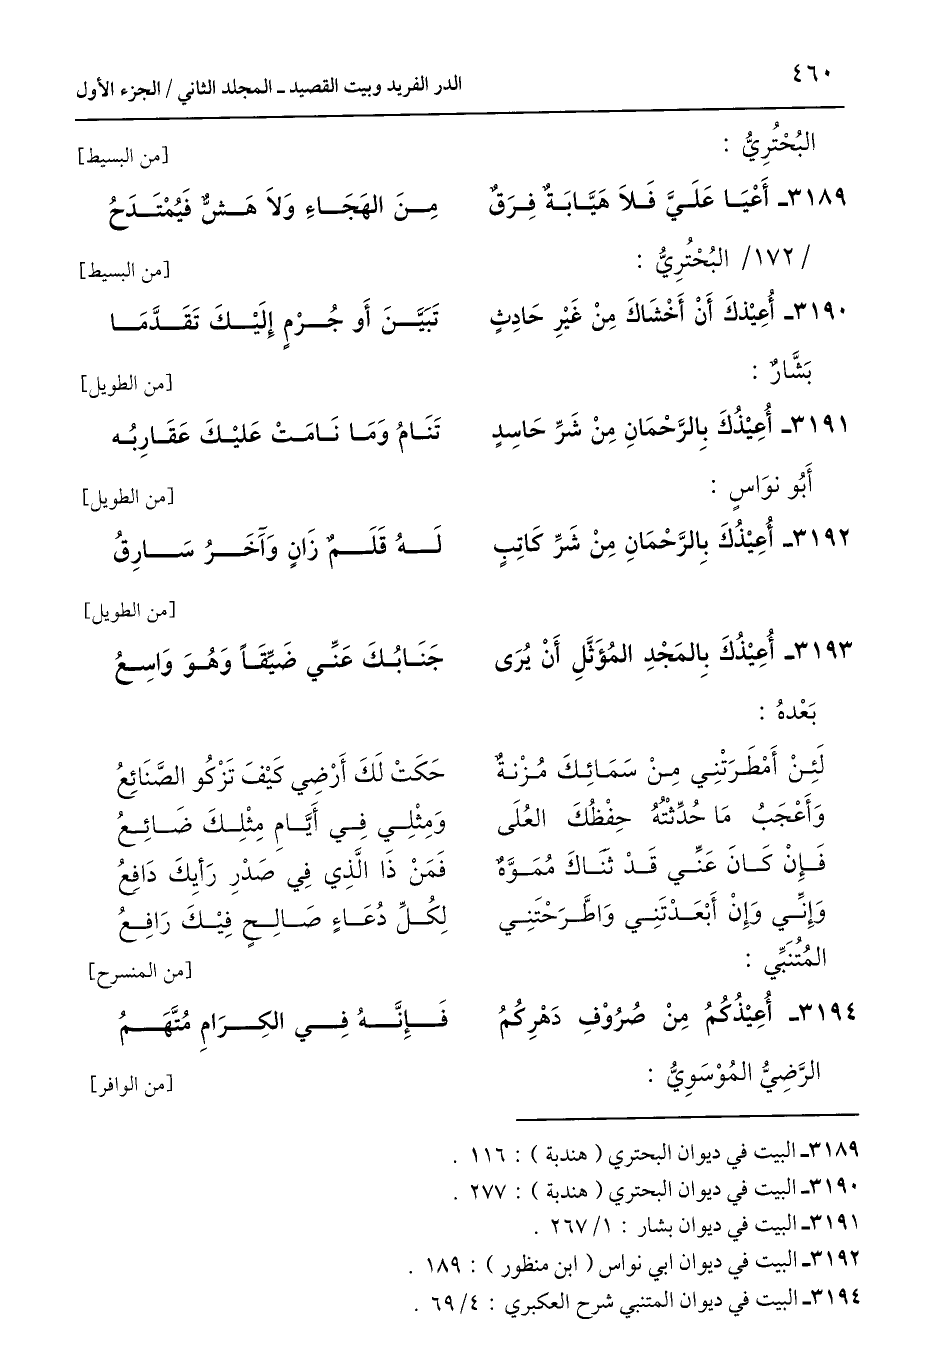 ٤٦٠
الدر الفريد وبيت القصيد ـ المجلد الثاني / الجزء الأول
البُحْتُرِيُّ :
[من البسيط]
٣١٨٩ـ أَعْيَا عَلَيَّ فَلاَ هَيَّابَةٌ فِرَقٌ مِنَ الهَجَاءِ وَلاَ هَشٌّ فَيُمْتَدَحُ
/ ١٧٢/ البُحْتُرِيُّ :
[من البسيط]
٣١٩٠ـ أُعِيْذكَ أَنْ أَخْشَاكَ مِنْ غَيْرِ حَادِثٍ تَبَيَّنَ أَو جُرْمٍ إِلَيْكَ تَقَدَّمَا
بَشَّارٌ :
[من الطويل]
٣١٩١ـ أُعِيْذُكَ بِالرَّحْمَانِ مِنْ شَرِّ حَاسِدٍ تَنَامُ وَمَا نَامَتْ عَلَيْكَ عَقَارِبُه
أَبُو نوَاسٍ :
[من الطويل]
٣١٩٢ـ أُعِيْذُكَ بِالرَّحْمَانِ مِنْ شَرِّ كَاتِبٍ لَهُ قَلَمٌ زَانٍ وَآخَرُ سَارِقُ
[من الطويل]
٣١٩٣ـ أُعِيْذُكَ بِالمَجْدِ المُؤَثَّلِ أَنْ يُرَى جَنَابُكَ عَنِّي ضَيِّقَاً وَهُوَ وَاسِعُ
بَعْدهُ :
لَئِنْ أَمْطَرَتْنِي مِنْ سَمَائِكَ مُزْنةٌ حَكَتْ لَكَ أَرْضِي كَيْفَ تَزْكُو الصَّنَائِعُ
وَأَعْجَبُ مَا حُدِّثْتُهُ حِفْظُكَ العُلَى وَمِثْلِي فِي أَيَّامِ مِثْلِكَ ضَائِعُ
فَإِنْ كَانَ عَنِّي قَدْ ثَنَاكَ مُمَوَّهٌ فَمَنْ ذَا الَّذِي فِي صَدْرِ رَأيِكَ دَافِعُ
وَإِنِّي وَإِنْ أَبْعَدْتَنِي وَاطَّرَحْتَنِي لِكُلِّ دُعَاءٍ صَالِحٍ فِيْكَ رَافِعُ
المُتَنَبِّي :
[من المنسرح]
٣١٩٤ـ أُعِيْذُكُمُ مِنْ صُرُوْفِ دَهْرِكُمُ فَإِنَّهُ فِي الكِرَامِ مُتَّهَمُ
الرَّضِيُّ المُوْسَوِيُّ :
[من الوافر]
٣١٨٩ـ البيت في ديوان البحتري ( هندبة ) : ١١٦ .
٣١٩٠ـ البيت في ديوان البحتري ( هندبة ) : ٢٧٧ .
٣١٩١ـ البيت في ديوان بشار : ١/ ٢٦٧ .
٣١٩٢ـ البيت في ديوان ابي نواس ( ابن منظور ) : ١٨٩ .
٣١٩٤ـ البيت في ديوان المتنبي شرح العكبري : ٤/ ٦٩ .